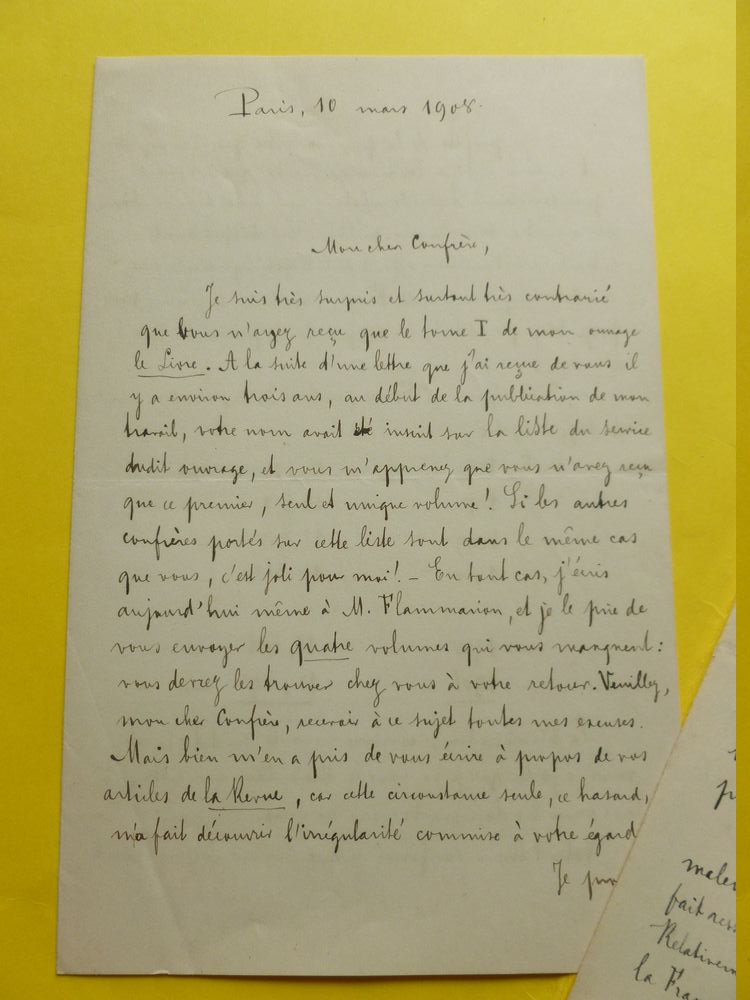 Paris, 10 mars 1908.
Mon cher Confrère,
Je suis très surpris et surtout très contrarié
que vous n'ayez reçu que le tome I de mon ouvrage
le Livre. A la suite d'une lettre que j'ai reçue de vous il
y a environ trois ans, au début de la publication de mon
travail, votre nom avait été inscrit sur la liste du service
dudit ouvrage, et vous m'apprenez que vous n'avez reçu
que ce premier, seul et unique volume! Si les autres
confrères portés sur cette liste sont dans le même cas
que vous, c'est joli pour moi! — En tout cas, j'écris
aujourd'hui même à M. Flammarion, et je le prie de
vous envoyer les quatre volumes qui vous manquent:
vous devrez les trouver chez vous à votre retour. Veuillez,
mon cher Confrère, recevoir à ce sujet toutes mes excuses.
Mais bien m'en a pris de vous écrire à propos de vos
articles de la Revue, car cette circonstance seule, ce hasard,
m'a fait découvrir l'irrégularité commise à votre égard
Je
fait
la